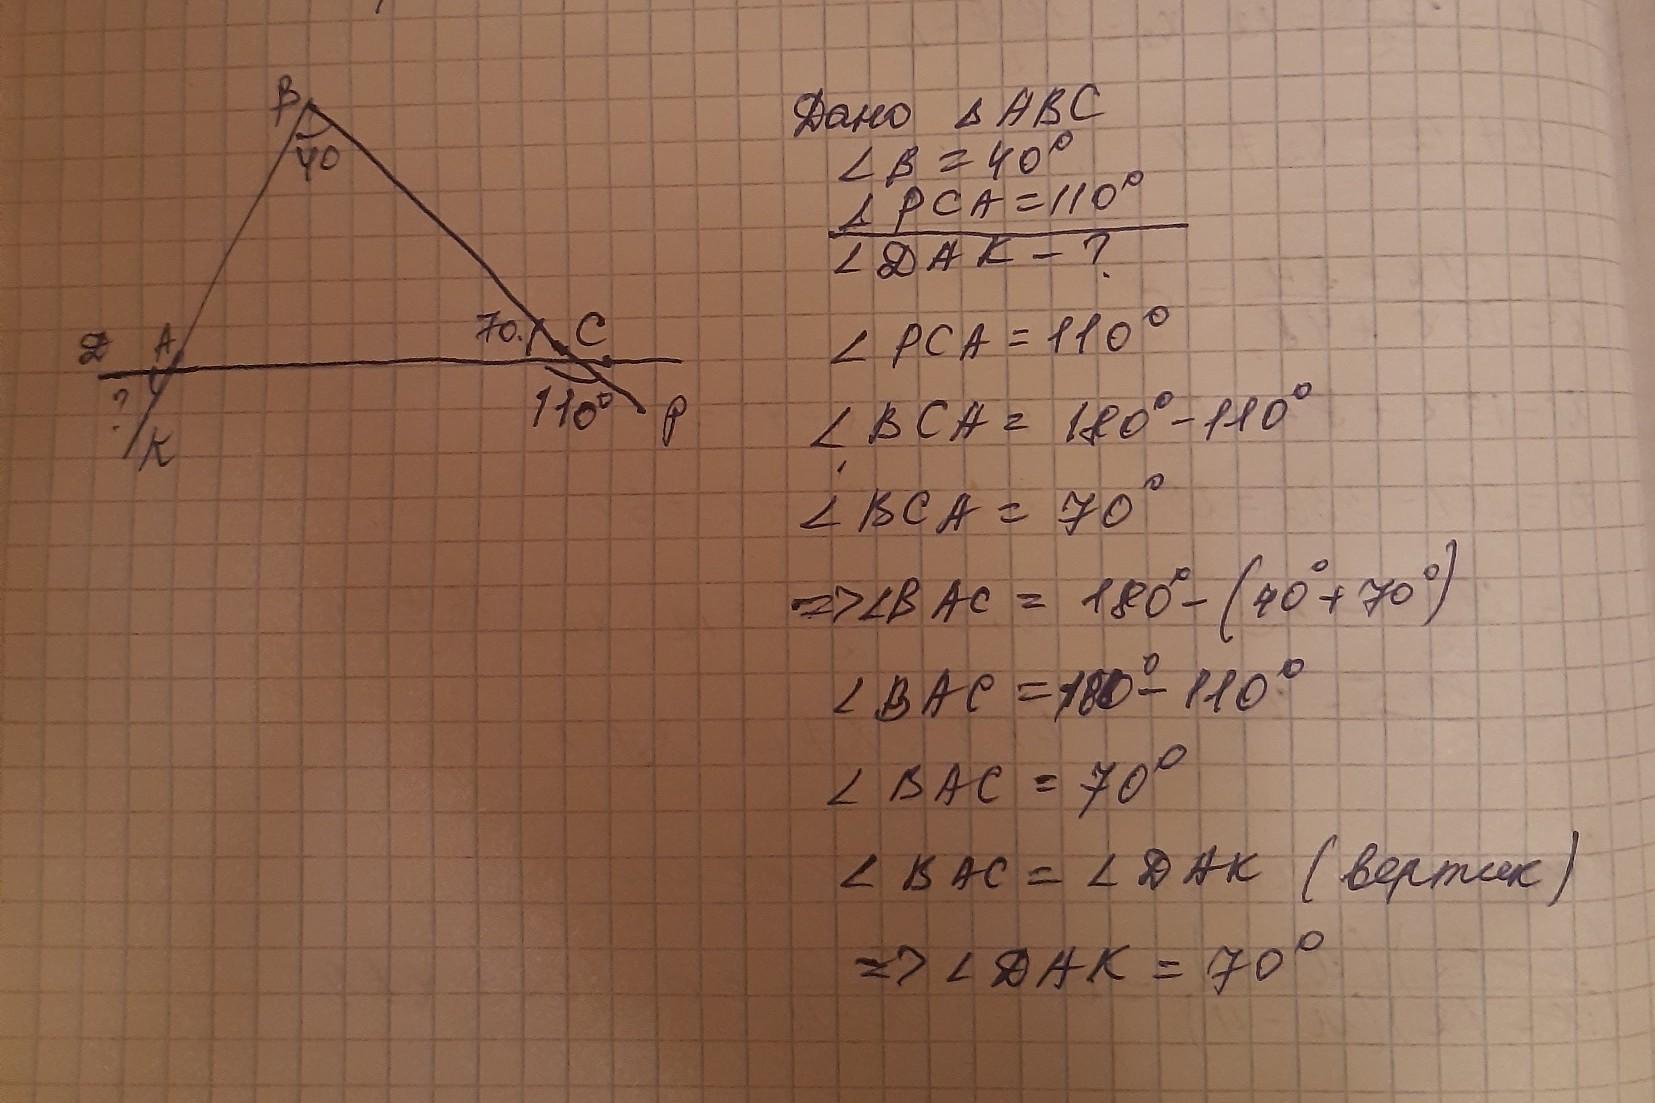 B
40
70.
C
Д
A
?
110°
P
K
Дано △ABC
∠B = 40°
∠PCA = 110°
∠DAK - ?
∠PCA = 110°
∠BCA = 180° - 110°
∠BCA = 70°
=> ∠BAC = 180° - (40° + 70°)
∠BAC = 180° - 110°
∠BAC = 70°
∠BAC = ∠DAK (вертик)
=> ∠DAK = 70°